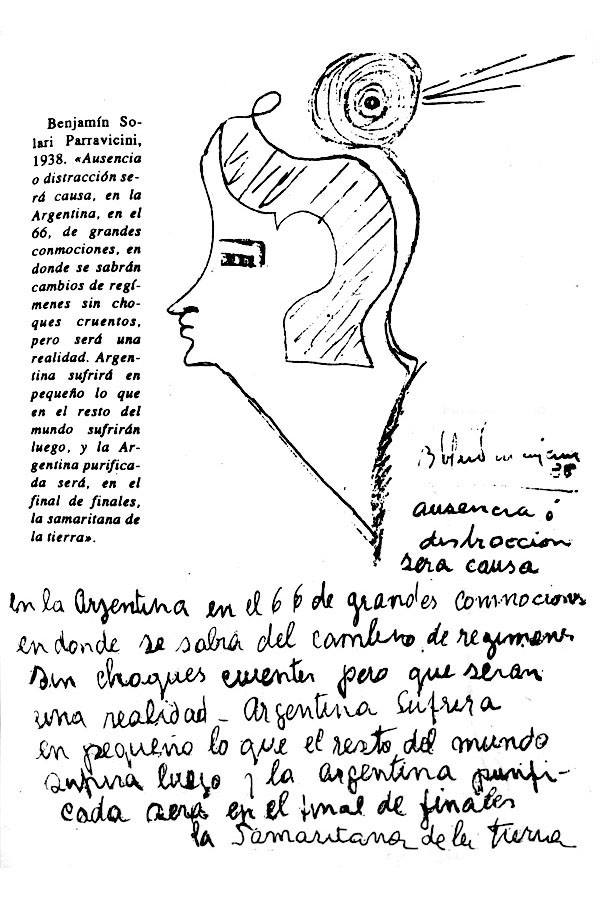 Benjamín So-
lari Parravicini,
1938. «Ausencia
o distracción se-
rá causa, en la
Argentina, en el
66, de grandes
conmociones, en
donde se sabrán
cambios de regí-
menes sin cho-
ques cruentos,
pero será una
realidad. Argen-
tina sufrirá en
pequeño lo que
en el resto del
mundo sufrirán
luego, y la Ar-
gentina purifica-
da será, en el
final de finales,
la samaritana de
la tierra».
38
ausencia ó
distraccion
sera causa
en la Argentina en el 66 de grandes conmociones
en donde se sabra del cambio de regimenes
sin choques cruentes pero que seran
una realidad - Argentina Sufrira
en pequeño lo que el resto del mundo
sufrira luego y la argentina purifi-
cada sera en el final de finales
la Samaritana de la tierra